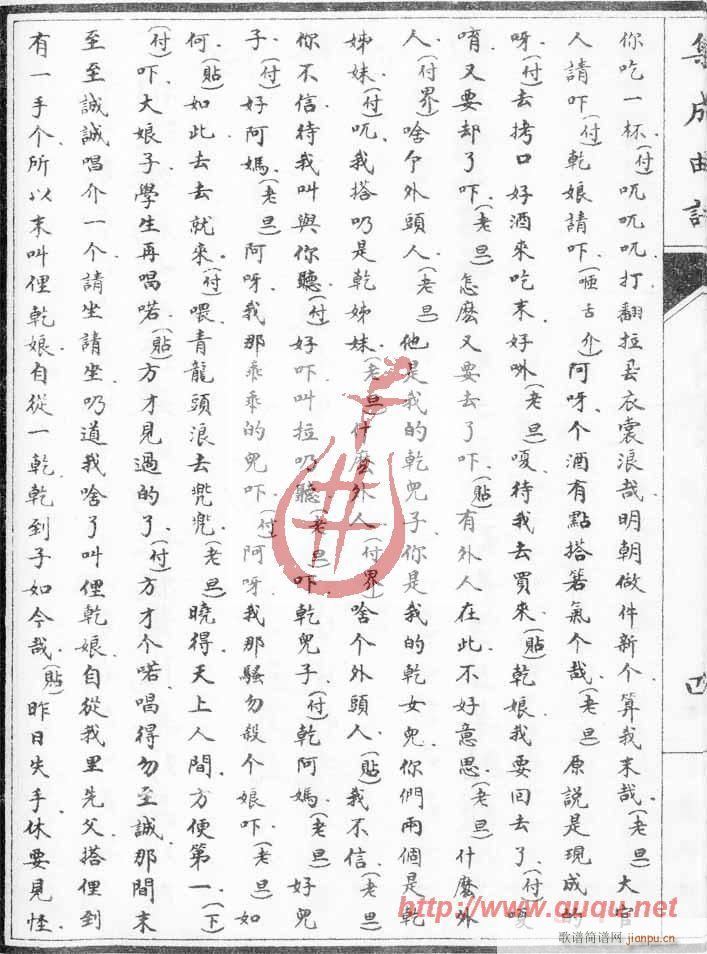 集成曲譜
四
你吃一杯、(付)吭吭吭、打翻拉丟衣裳浪哉、明朝做件新个、算我末哉、(老旦)大官
人請吓、(付)乾娘請吓、(咂舌介)阿呀、个酒有點搭箬氣个哉、(老旦)原說是現成的
呀、(付)去拷口好酒來吃末好𠲔、(老旦)嗄、待我去買來、(貼)乾娘、我要回去了、(付)嗄
唷、又要却了吓、(老旦)怎麽又要去了吓、(貼)有外人在此、不好意思、(老旦)什麽外
人、(付界)啥个外頭人、(老旦)他是我的乾兒子、你是我的乾女兒、你們兩個是乾
姊妹、(付)吭、我搭乃是乾姊妹、(老旦)什麽外人、(付界)啥个外頭人、(貼)我不信、(老旦)
你不信、待我叫與你聽、(付)好吓、叫拉乃聽、(老旦)吓、乾兒子、(付)乾阿媽、(老旦)好兒
子、(付)好阿媽、(老旦)阿呀、我那乖乖的兒吓、(付)阿呀、我那騷勿殺个娘吓、(老旦)如
何、(貼)如此去去就來、(付)喂、青龍頭浪去兜兜、(老旦)曉得、天上人間、方便第一、(下)
(付)吓、大娘子、學生再唱喏、(貼)方才見過的了、(付)方才个喏、唱得勿至誠、那間末
至至誠誠唱介一个、請坐請坐、乃道我啥了叫俚乾娘、自從我里先父搭俚到
有一手个、所以末叫俚乾娘、自從一乾、乾到子如今哉、(貼)昨日失手、休要見怪、
http://www.ququ.net
歌谱简谱网 jianpu.cn